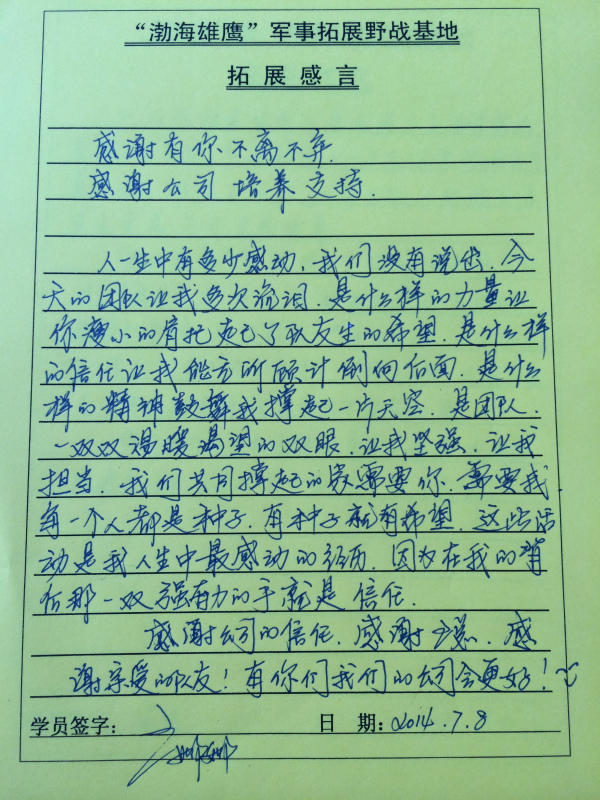 “渤海雄鹰”军事拓展野战基地
拓展感言
感谢有你不离不弃.
感谢公司培养支持.
人一生中有多少感动.我们没有说出.今
天的团队让我多次流泪.是什么样的力量让
你瘦小的肩托起了队友生的希望.是什么样
的信任让我能无所顾计倒向后面.是什么
样的精神鼓舞我撑起一片天空.是团队.
一双双温暖渴望的双眼.让我坚强.让我
担当.我们共同撑起的家需要你.需要我.
每一个人都是种子.有种子就有希望.这些活
动是我人生中最感动的经历.因为在我的背
后那一双强有力的手就是信任.
感谢公司的信任.感谢.感
谢亲爱的队友!有你们我们的公司会更好!
学员签字:
日 期:2014.7.8